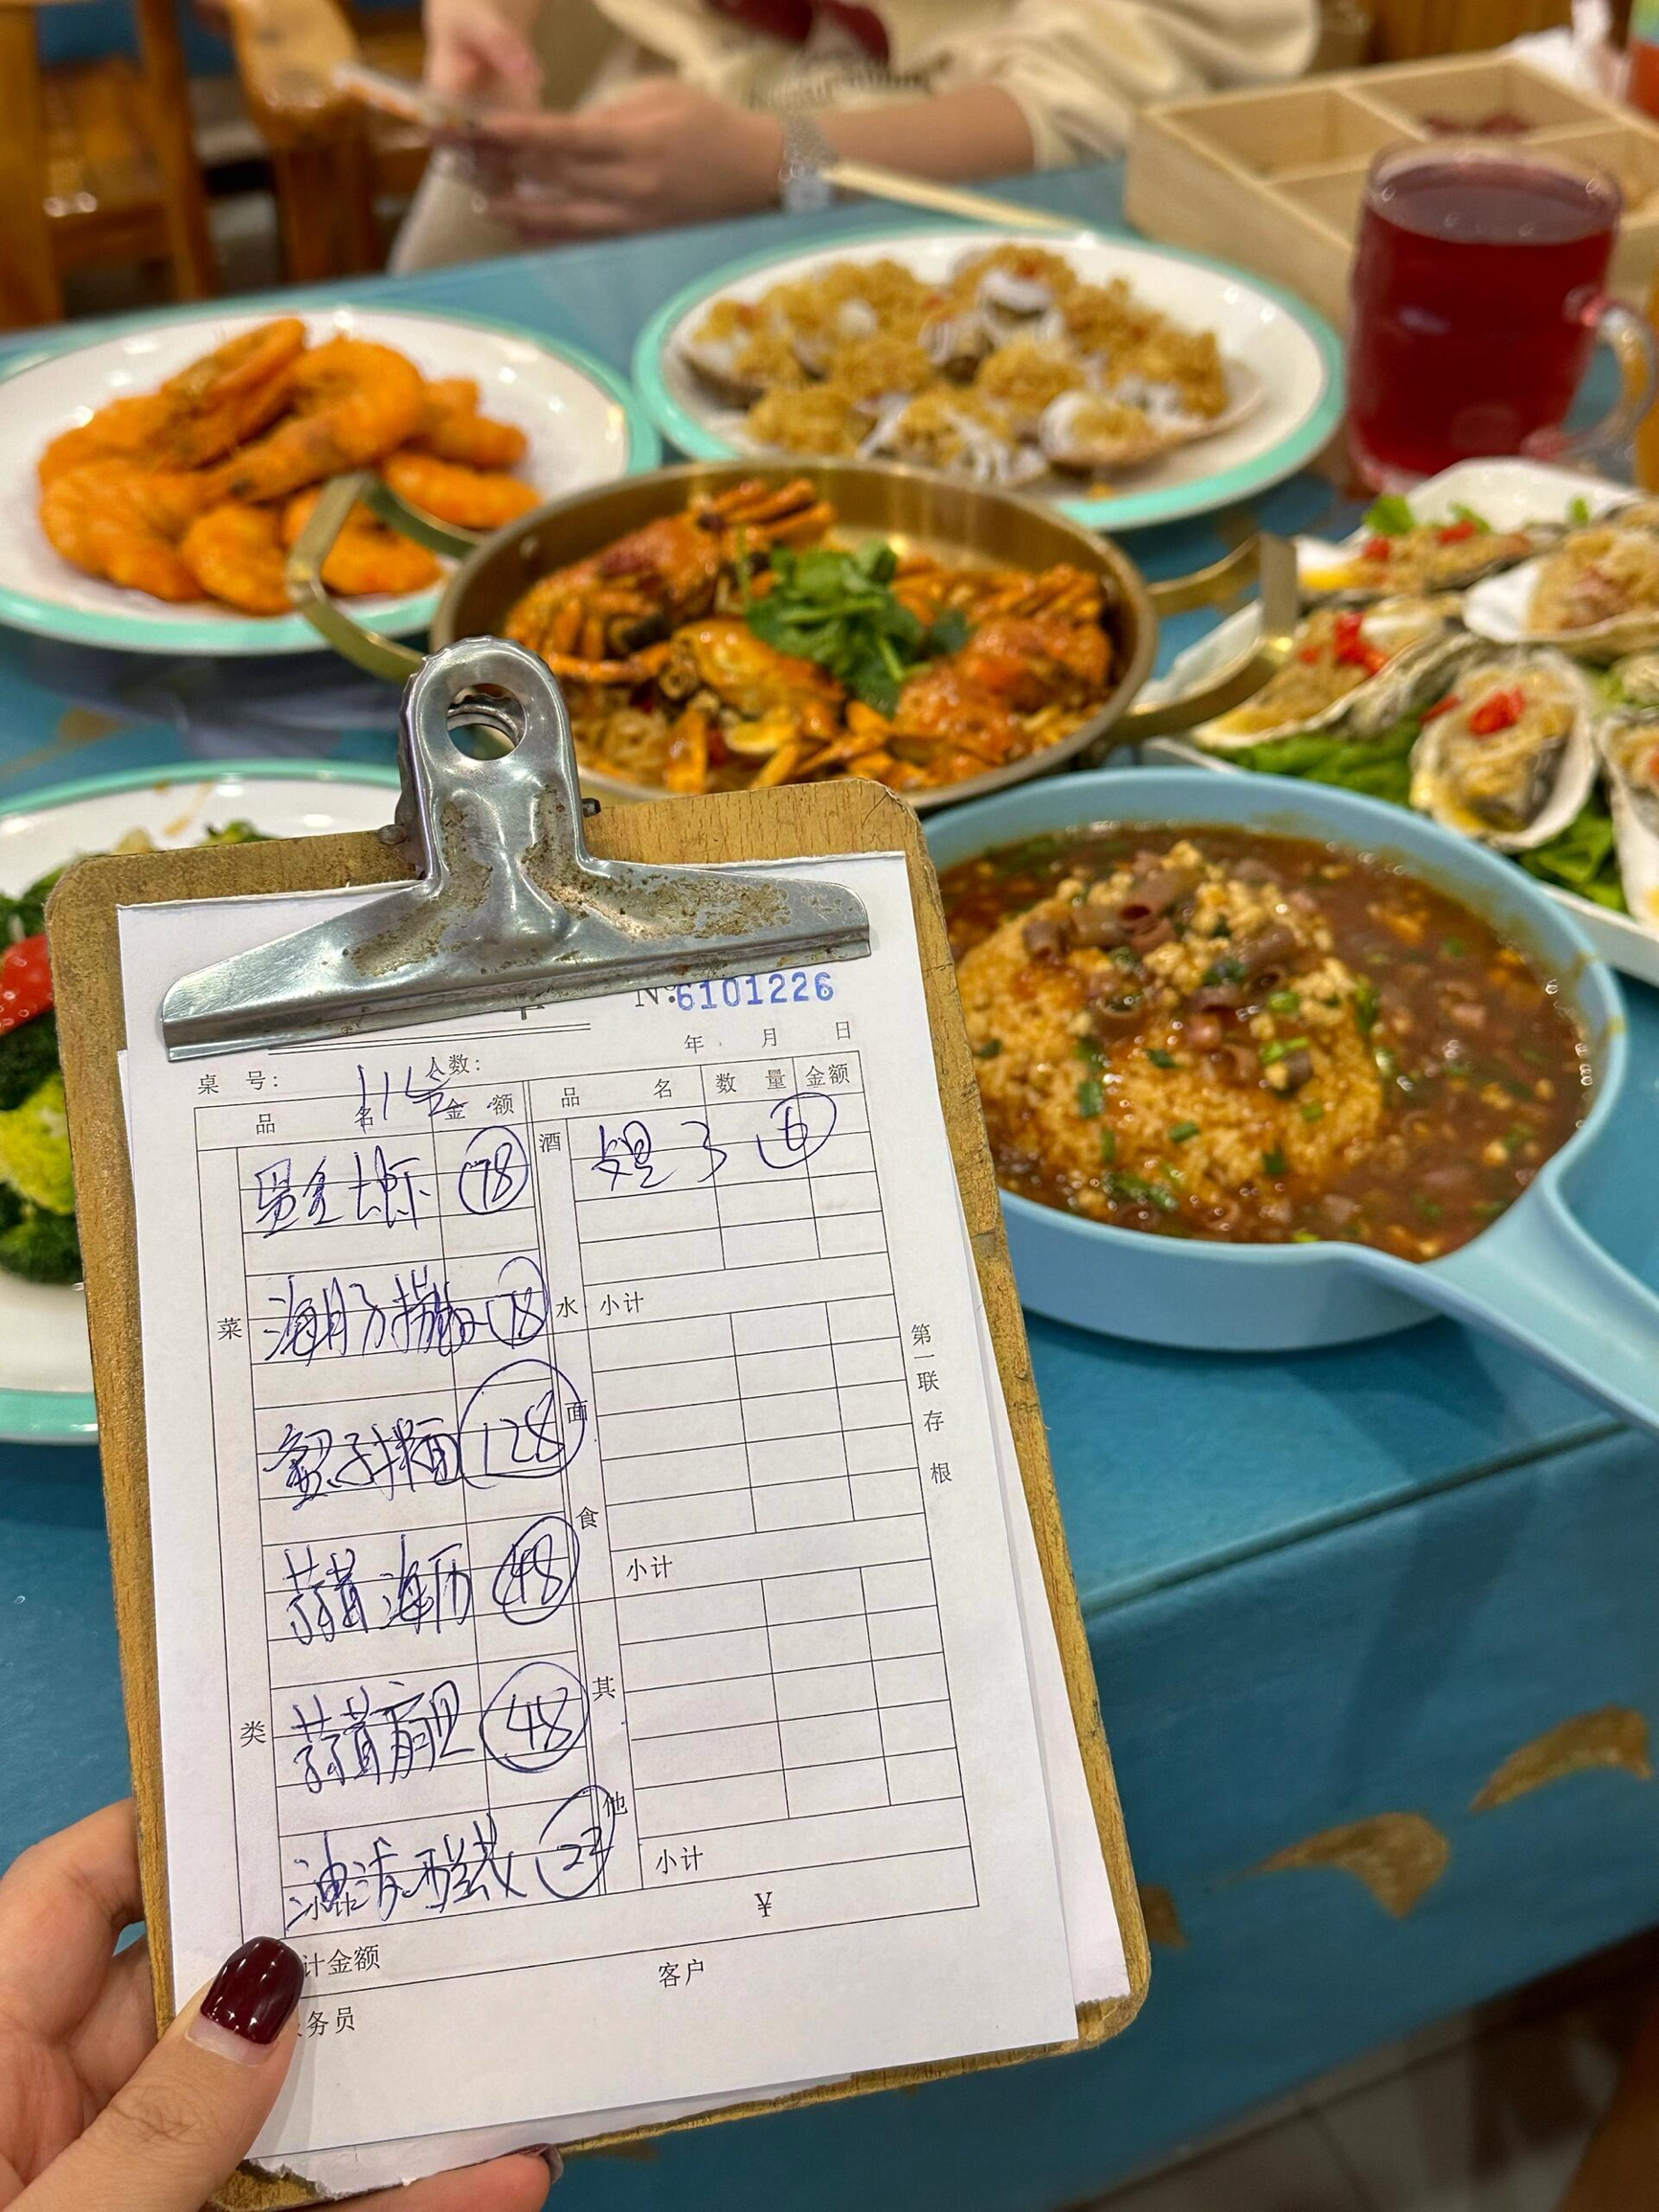 №6101226
年 月 日
桌 号: 11台 人数:
品 名 金 额 品 名 数 量 金额
菜类
黄金大虾 78
海肠子捞饭 78
蟹子拌面 128
蒜蓉海历 48
蒜蓉扇贝 48
油漬西兰花
小计
酒水
6
小计
面食
小计
其他
小计
计金额 ¥
务员 客户
第一联存根